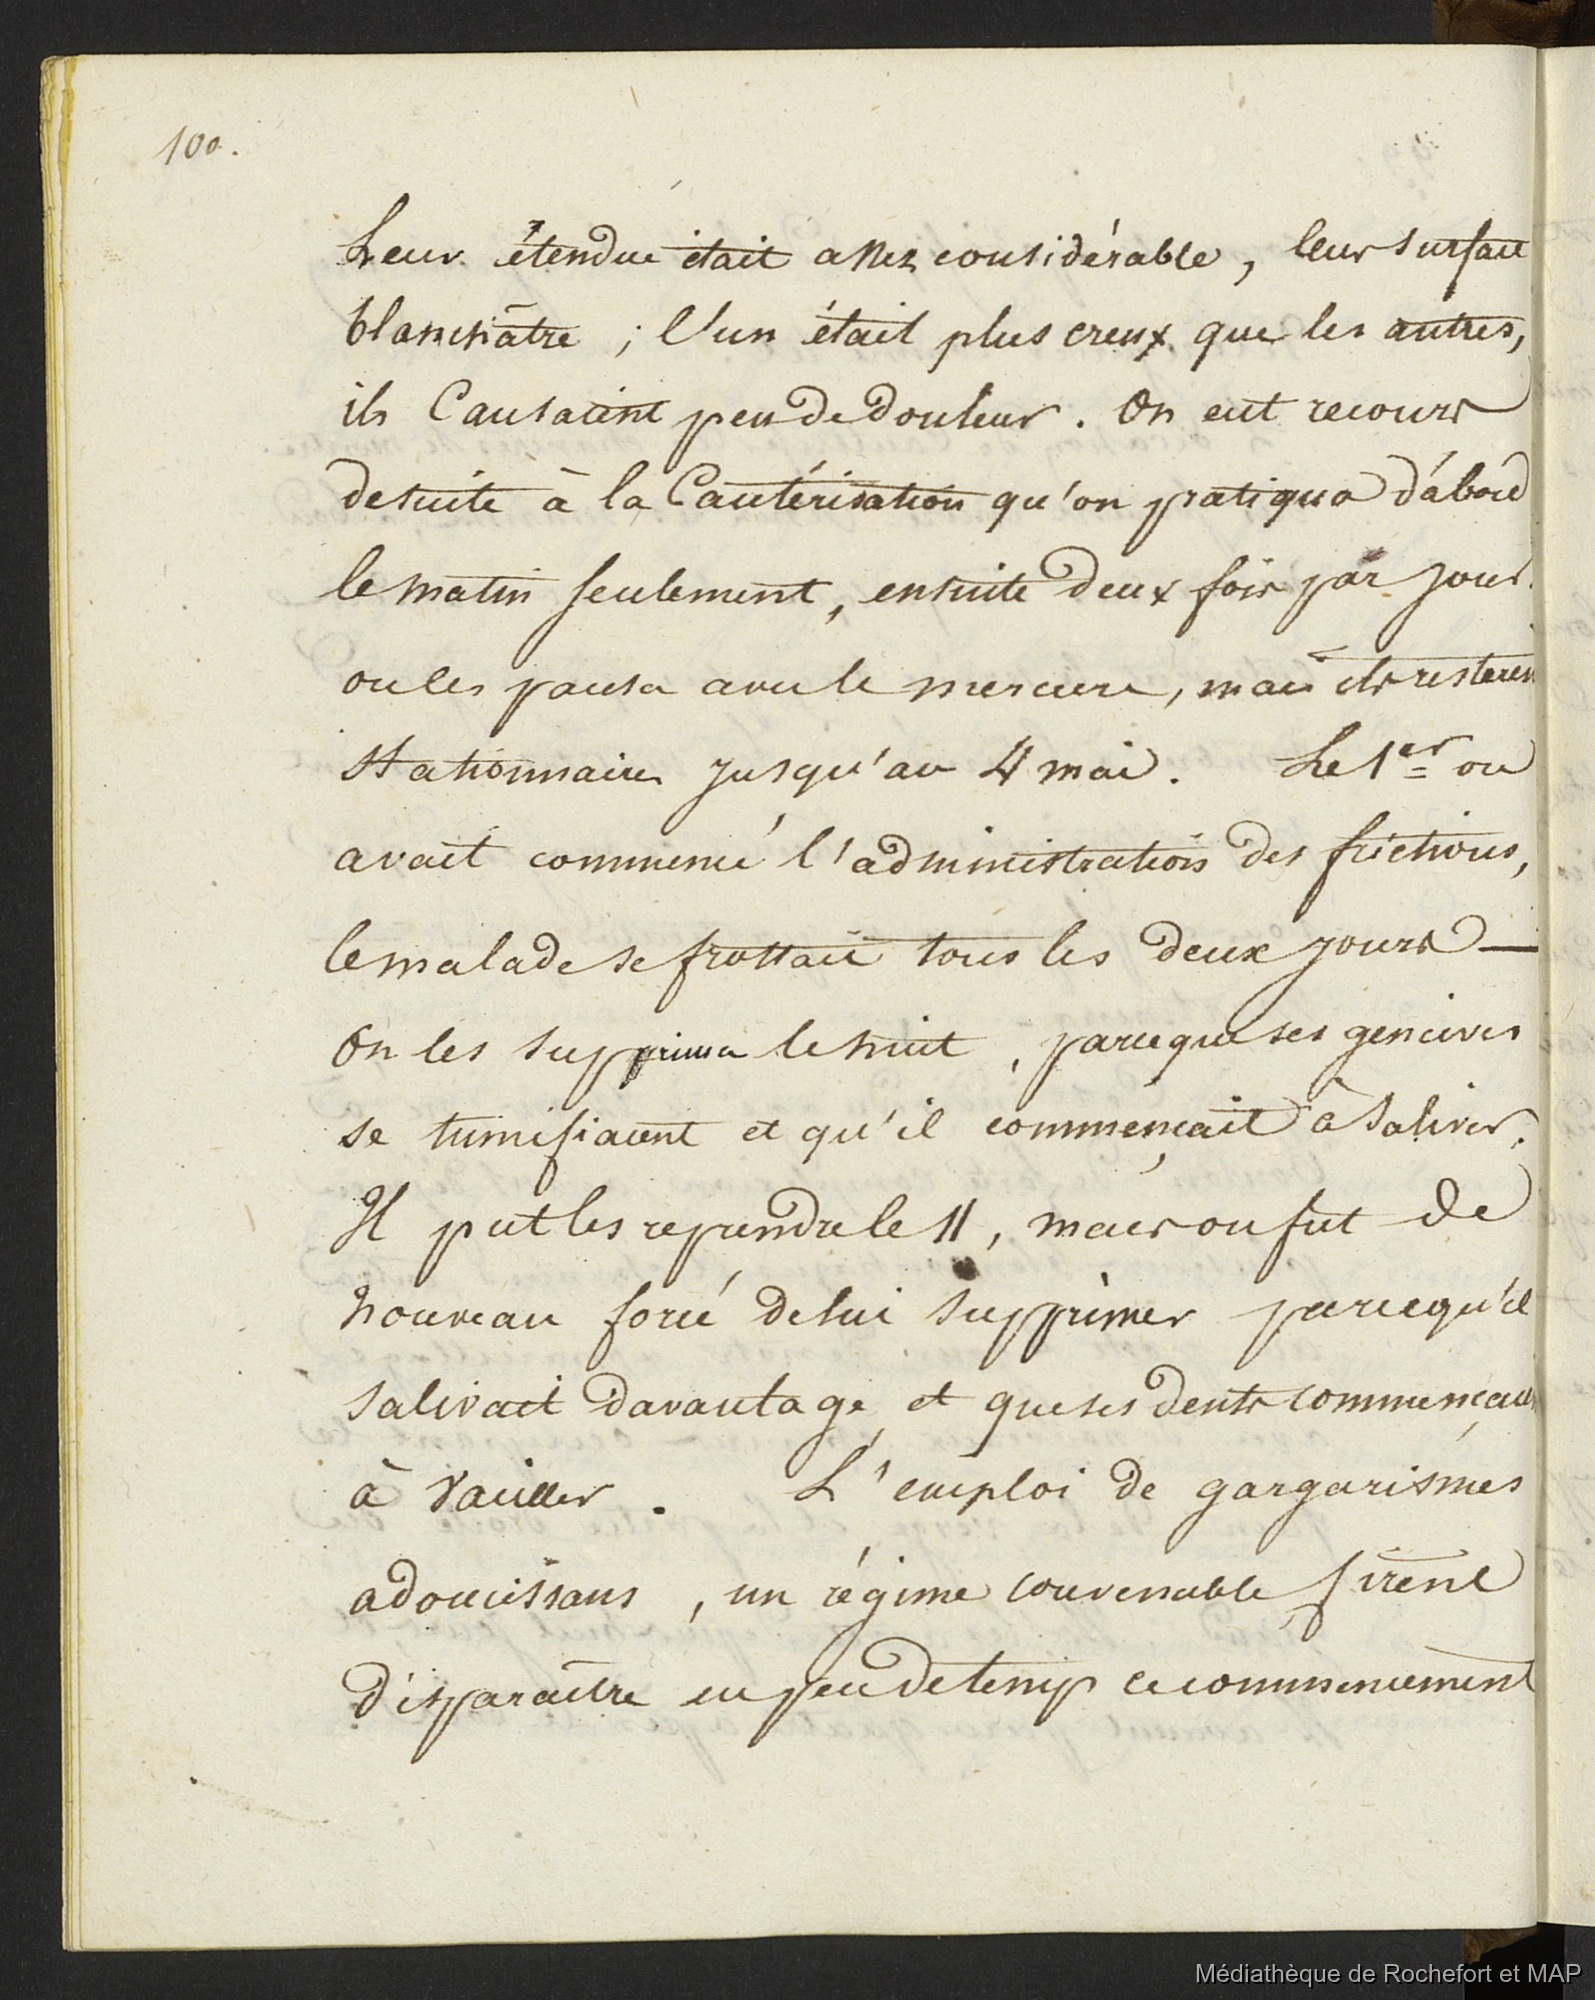 100.
Leur étendue était assez considérable, leur surface
blanchâtre ; l'un était plus creux que les autres,
ils causaient peu de douleur. On eut recours
de suite à la Cautérisation qu'on pratiqua d'abord
le matin seulement, ensuite deux fois par jour.
on les pansa avec le mercure, mais ils restèrent
stationnaires jusqu'au 4 mai. Le 1er on
avait commencé l'administration des frictions,
le malade se frottait tous les deux jours —
On les supprima le huit, parceque ses gencives
se tuméfiaient et qu'il commençait à saliver.
Il put les reprendre le 11, mais on fut de
nouveau forcé de lui supprimer parcequ'il
salivait davantage et que ses dents commençaient
à vaciller. L'emploi de gargarismes
adoucissans, un régime convenable, firent
disparaître en peu de temps ce commencement
Médiathèque de Rochefort et MAP